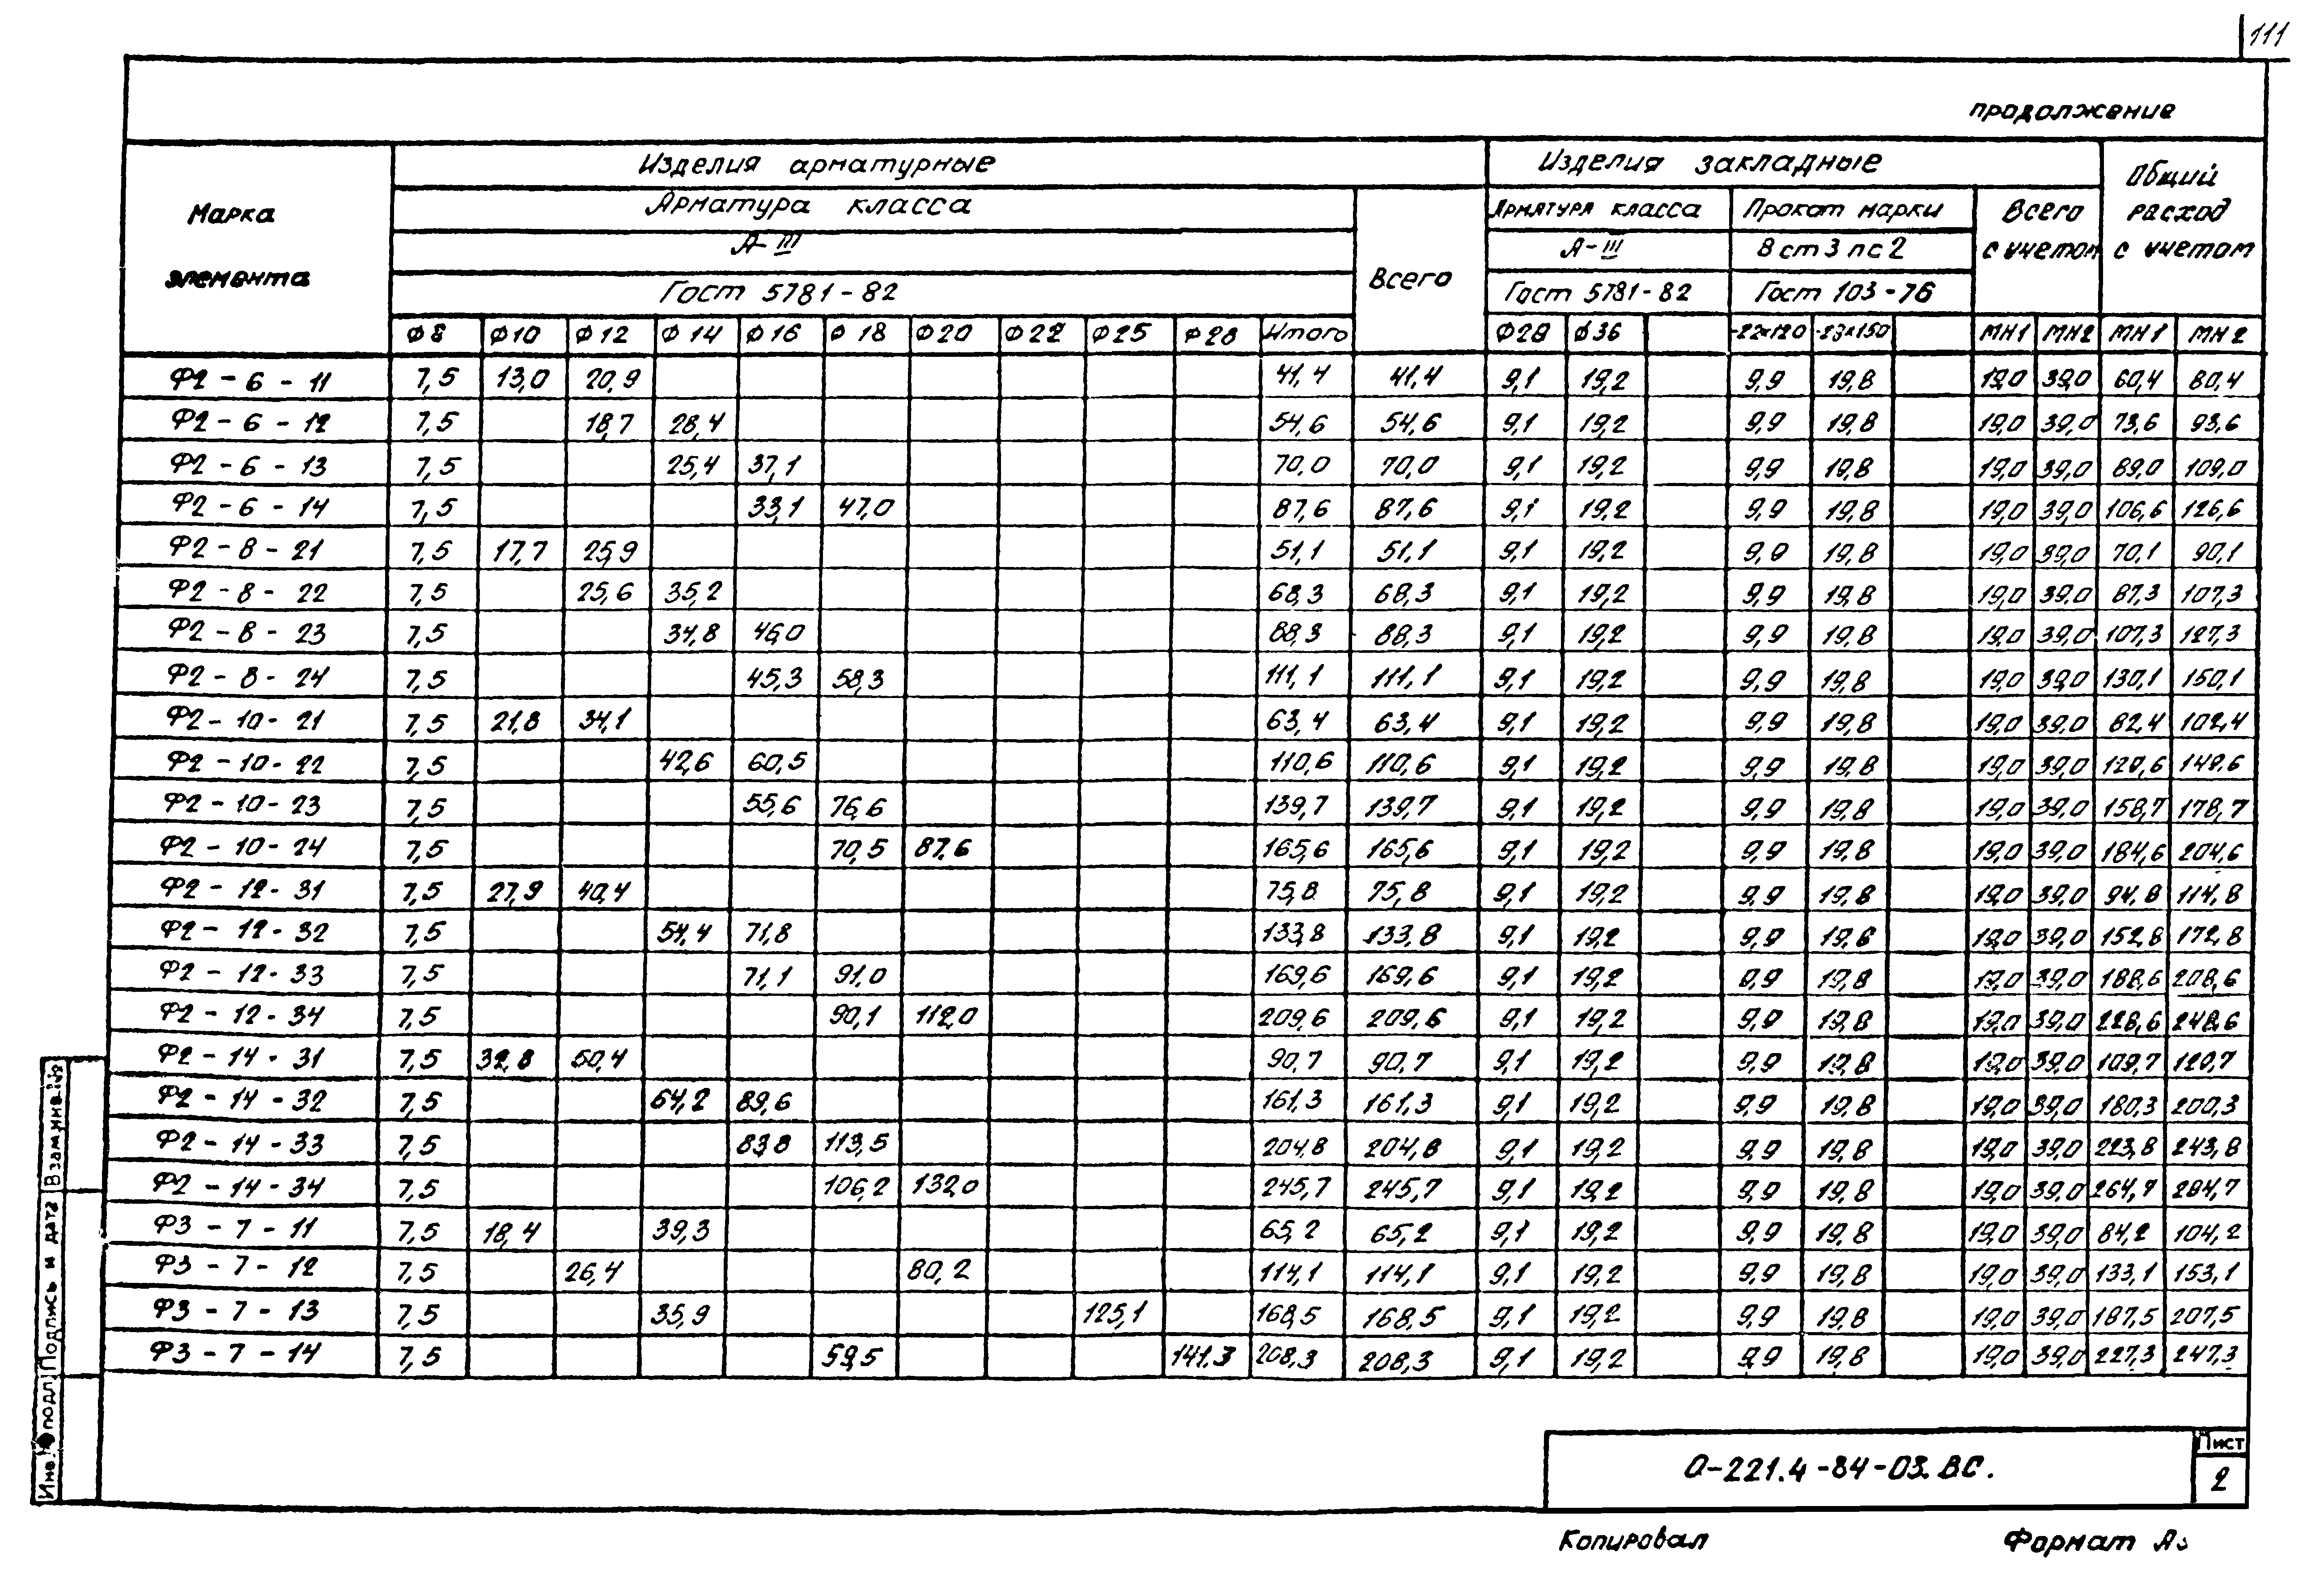 111
продолжение
Марка элемента | Изделия арматурные | Изделия закладные | Общий расход с учетом
Арматура класса | Всего | Арматура класса | Прокат марки | Всего с учетом
А-III | А-III | Вст3пс2
Гост 5781-82 | Гост 5781-82 | Гост 103-76
Ф8 Ф10 Ф12 Ф14 Ф16 Ф18 Ф20 Ф22 Ф25 Ф28 Итого Ф28 Ф36 МН1 МН2 МН1 МН2
Ф2-6-11 7,5 13,0 20,9 41,4 41,4 9,1 19,2 9,9 19,8 19,0 39,0 60,4 80,4
Ф2-6-12 7,5 18,7 28,4 54,6 54,6 9,1 19,2 9,9 19,8 19,0 39,0 73,6 93,6
Ф2-6-13 7,5 25,4 37,1 70,0 70,0 9,1 19,2 9,9 19,8 19,0 39,0 89,0 109,0
Ф2-6-14 7,5 33,1 47,0 87,6 87,6 9,1 19,2 9,9 19,8 19,0 39,0 106,6 126,6
Ф2-8-21 7,5 17,7 25,9 51,1 51,1 9,1 19,2 9,9 19,8 19,0 39,0 70,1 90,1
Ф2-8-22 7,5 25,6 35,2 68,3 68,3 9,1 19,2 9,9 19,8 19,0 39,0 87,3 107,3
Ф2-8-23 7,5 34,8 46,0 88,3 88,3 9,1 19,2 9,9 19,8 19,0 39,0 107,3 127,3
Ф2-8-24 7,5 45,3 58,3 111,1 111,1 9,1 19,2 9,9 19,8 19,0 39,0 130,1 150,1
Ф2-10-21 7,5 21,8 34,1 63,4 63,4 9,1 19,2 9,9 19,8 19,0 39,0 82,4 102,4
Ф2-10-22 7,5 42,6 60,5 110,6 110,6 9,1 19,2 9,9 19,8 19,0 39,0 129,6 149,6
Ф2-10-23 7,5 55,6 76,6 139,7 139,7 9,1 19,2 9,9 19,8 19,0 39,0 158,7 178,7
Ф2-10-24 7,5 70,5 87,6 165,6 165,6 9,1 19,2 9,9 19,8 19,0 39,0 184,6 204,6
Ф2-12-31 7,5 27,9 40,4 75,8 75,8 9,1 19,2 9,9 19,8 19,0 39,0 94,8 114,8
Ф2-12-32 7,5 54,4 71,8 133,8 133,8 9,1 19,2 9,9 19,6 19,0 39,0 152,8 172,8
Ф2-12-33 7,5 71,1 91,0 169,6 169,6 9,1 19,2 9,9 19,8 19,0 39,0 188,6 208,6
Ф2-12-34 7,5 90,1 112,0 209,6 209,6 9,1 19,2 9,9 19,8 19,0 39,0 228,6 248,6
Ф2-14-31 7,5 32,8 50,4 90,7 90,7 9,1 19,2 9,9 19,8 19,0 39,0 109,7 120,7
Ф2-14-32 7,5 64,2 89,6 161,3 161,3 9,1 19,2 9,9 19,8 19,0 39,0 180,3 200,3
Ф2-14-33 7,5 83,8 113,5 204,8 204,8 9,1 19,2 9,9 19,8 19,0 39,0 223,8 243,8
Ф2-14-34 7,5 106,2 132,0 245,7 245,7 9,1 19,2 9,9 19,8 19,0 39,0 264,7 284,7
Ф3-7-11 7,5 18,4 39,3 65,2 65,2 9,1 19,2 9,9 19,8 19,0 39,0 84,2 104,2
Ф3-7-12 7,5 26,4 80,2 114,1 114,1 9,1 19,2 9,9 19,8 19,0 39,0 133,1 153,1
Ф3-7-13 7,5 35,9 125,1 168,5 168,5 9,1 19,2 9,9 19,8 19,0 39,0 187,5 207,5
Ф3-7-14 7,5 59,5 141,3 208,3 208,3 9,1 19,2 9,9 19,8 19,0 39,0 227,3 247,3
Взам.инв.№
Подпись и дата
Инв.№ подл
О-221.4-84-03.ВС.
Лист
2
Копировал Формат А3